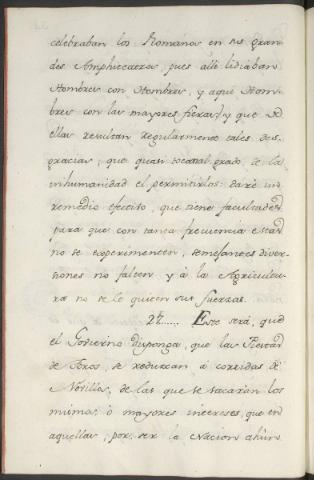 celebraban los Romanos en sus gran
des Amphiteatros, pues alli lidiaban
Hombres con Hombres, y aqui Hom-
bres con las mayores fieras, y que de
ellas resultan regularmente tales des-
gracias, que quasi toca al grado de la
inhumanidad el permitirlos: daré un
remedio efectivo, que tiene facultades
para que con tanta frecuencia estas
no se experimenten, semejantes diver-
siones no falten y á la Agricultu-
ra no se le quiten sus fuerzas.
27..... Este será, que
el Govierno disponga, que las Fiestas
de Toros, se reduzcan á corridas de
Novillos, de las que se sacaran los
mismos, ó mayores intereses, que en
aquellas, por ser la Nacion